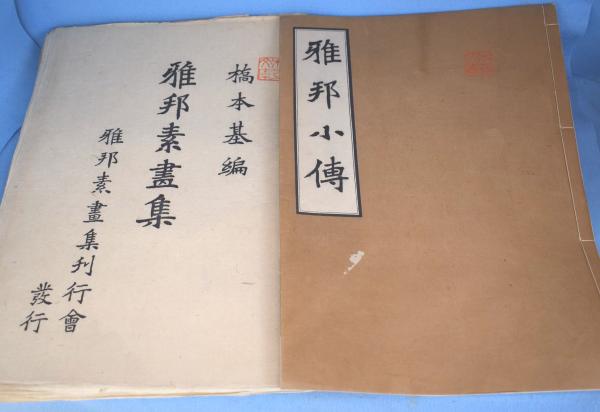 雅邦小傳
橋本基編
雅邦素畫集
雅邦素畫集刊行會
發行